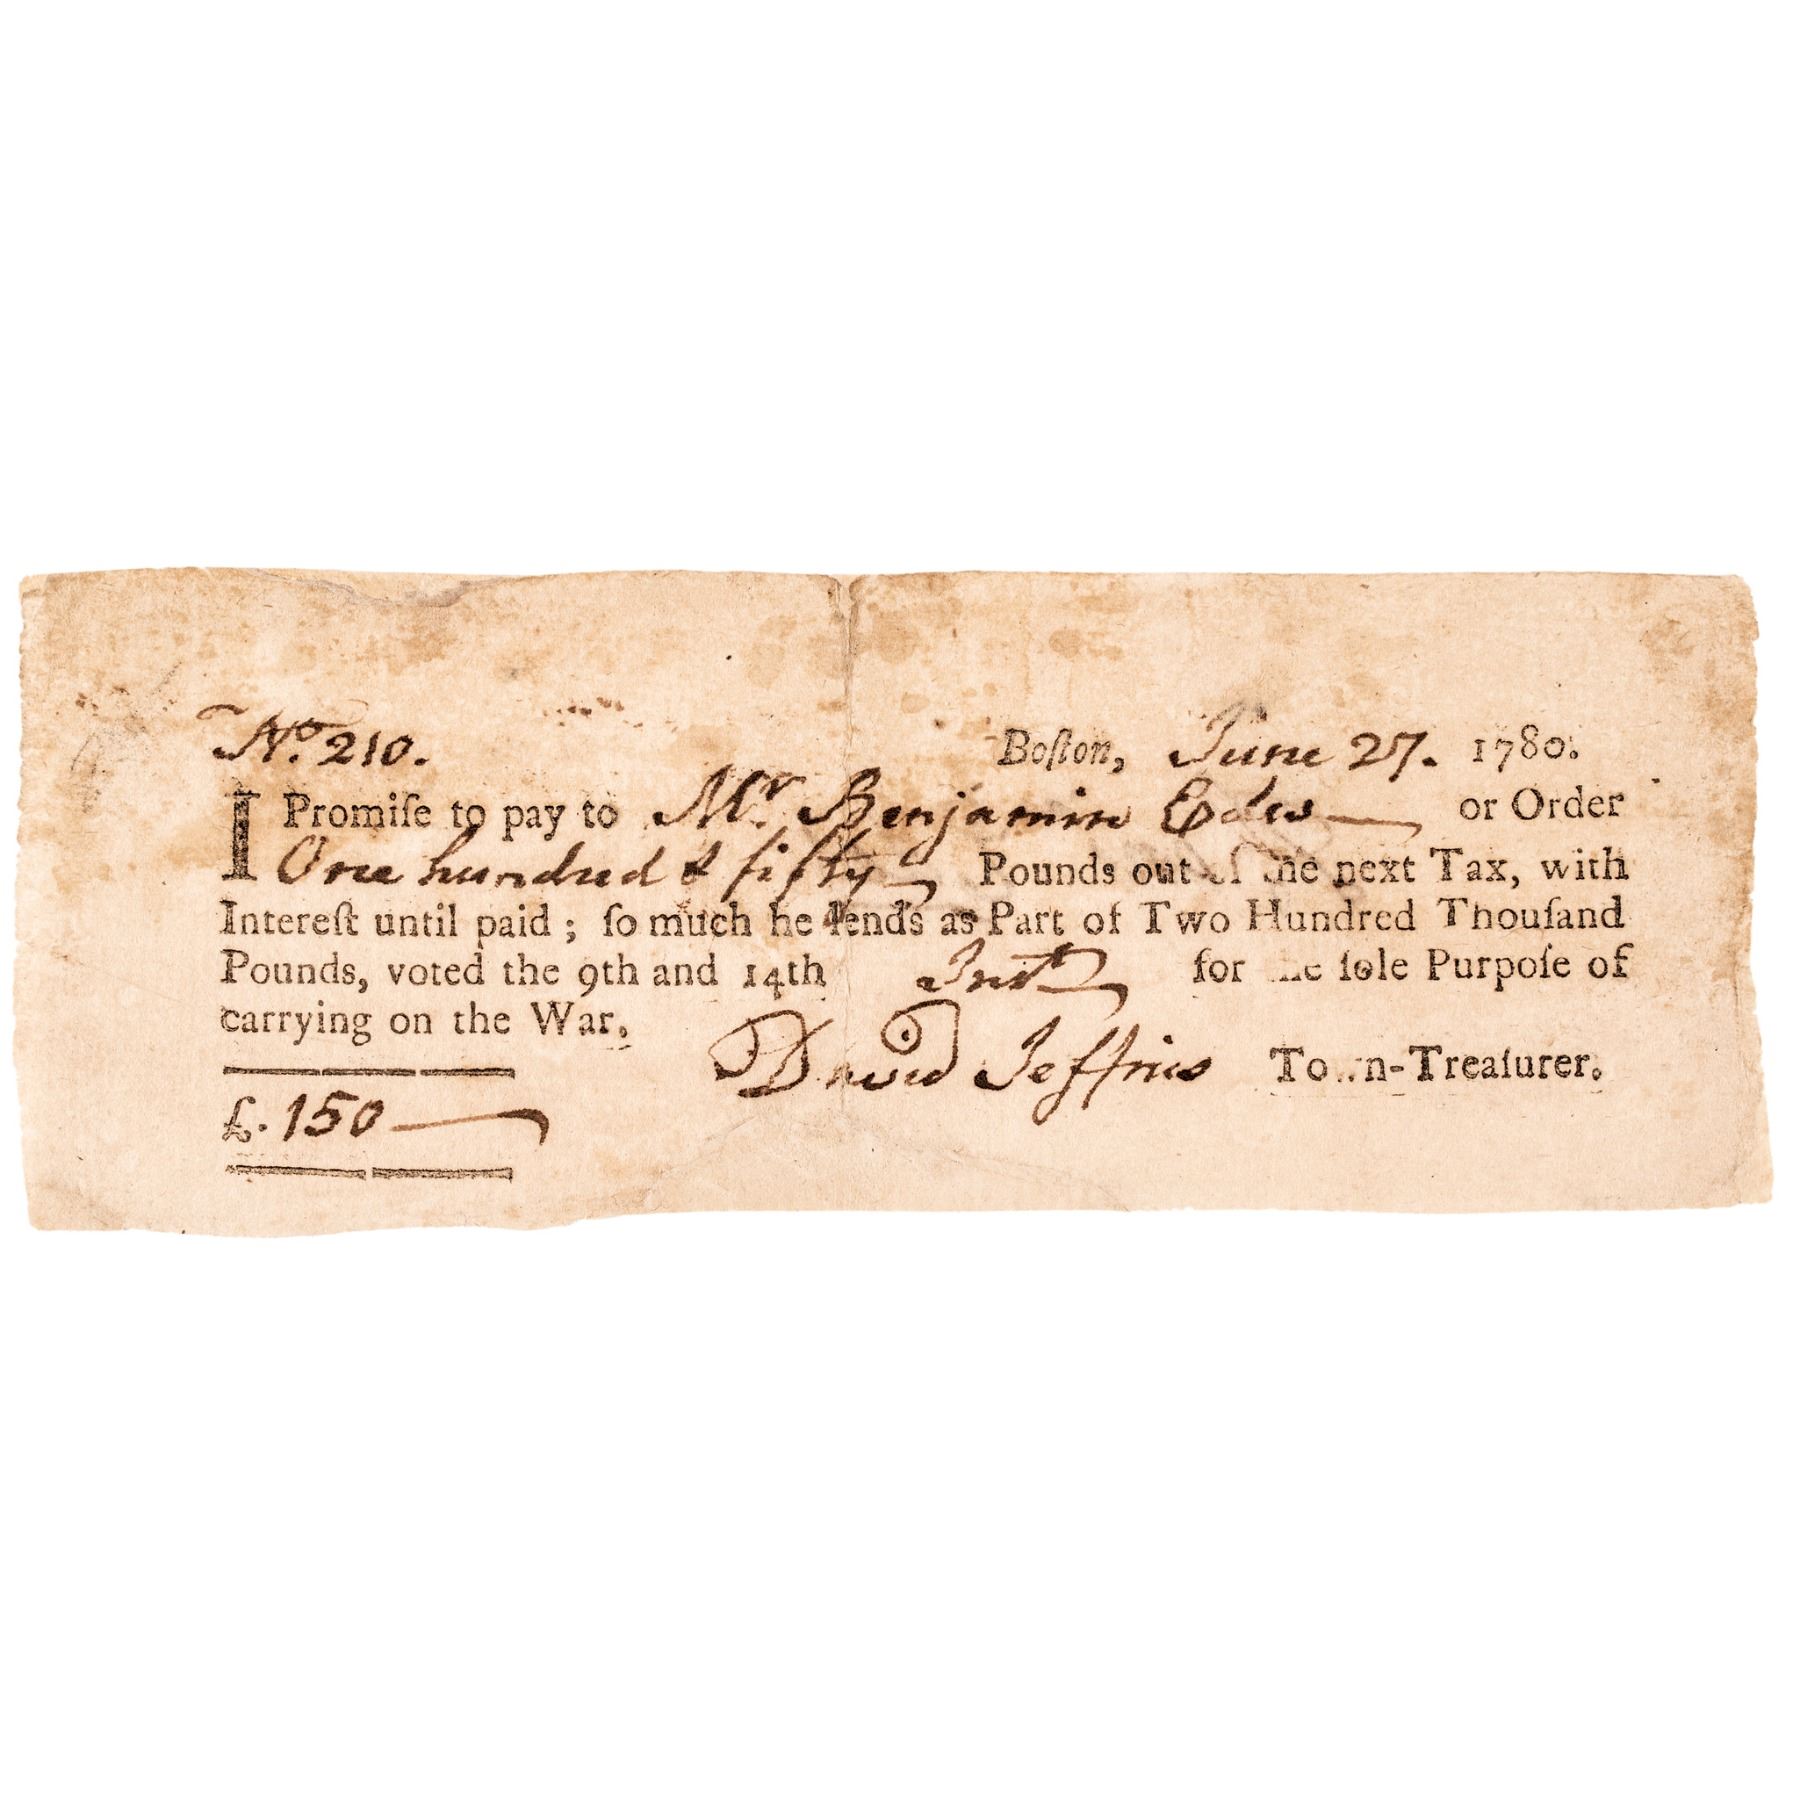 No. 210. Boſton, June 27. 1780.
I Promiſe to pay to Mr. Benjamin Edes or Order
One hundred & fifty Pounds out of the next Tax, with
Intereſt until paid ; ſo much he lends as Part of Two Hundred Thouſand
Pounds, voted the 9th and 14th Inst. for the ſole Purpoſe of
carrying on the War.
David Jeffries Town-Treaſurer.
£. 150